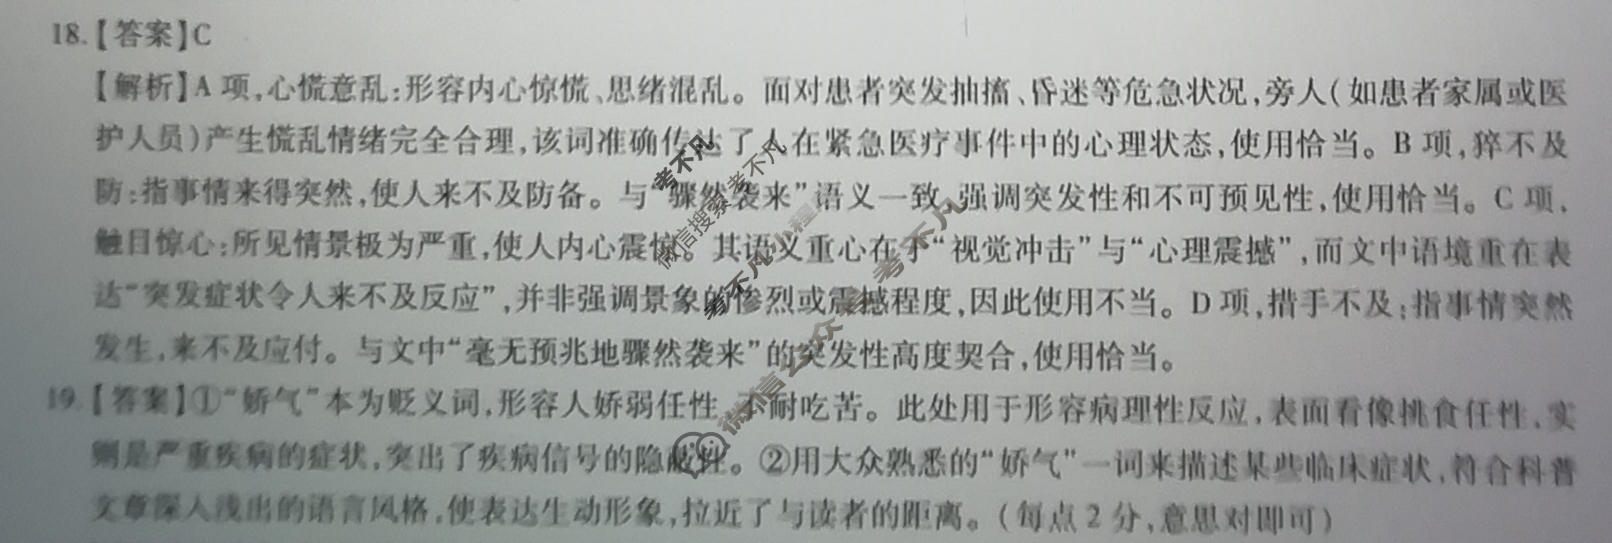 18.【答案】C
【解析】A 项,心慌意乱:形容内心惊慌、思绪混乱。面对患者突发抽搐、昏迷等危急状况,旁人(如患者家属或医
护人员)产生慌乱情绪完全合理,该词准确传达了人在紧急医疗事件中的心理状态,使用恰当。B 项,猝不及
防:指事情来得突然,使人来不及防备。与“骤然袭来”语义一致,强调突发性和不可预见性,使用恰当。C 项,
触目惊心:所见情景极为严重,使人内心震惊。其语义重心在于“视觉冲击”与“心理震撼”,而文中语境重在表
达“突发症状令人来不及反应”,并非强调景象的惨烈或震撼程度,因此使用不当。D 项,措手不及:指事情突然
发生,来不及应付。与文中“毫无预兆地骤然袭来”的突发性高度契合,使用恰当。
19.【答案】①“娇气”本为贬义词,形容人娇弱任性、不耐吃苦。此处用于形容病理性反应,表面看像挑食任性,实
则是严重疾病的症状,突出了疾病信号的隐蔽性。②用大众熟悉的“娇气”一词来描述某些临床症状,符合科普
文章深入浅出的语言风格,使表达生动形象,拉近了与读者的距离。(每点2分,意思对即可)
考不凡
微信搜索考不凡
考不凡小程
微信公众号:考不凡